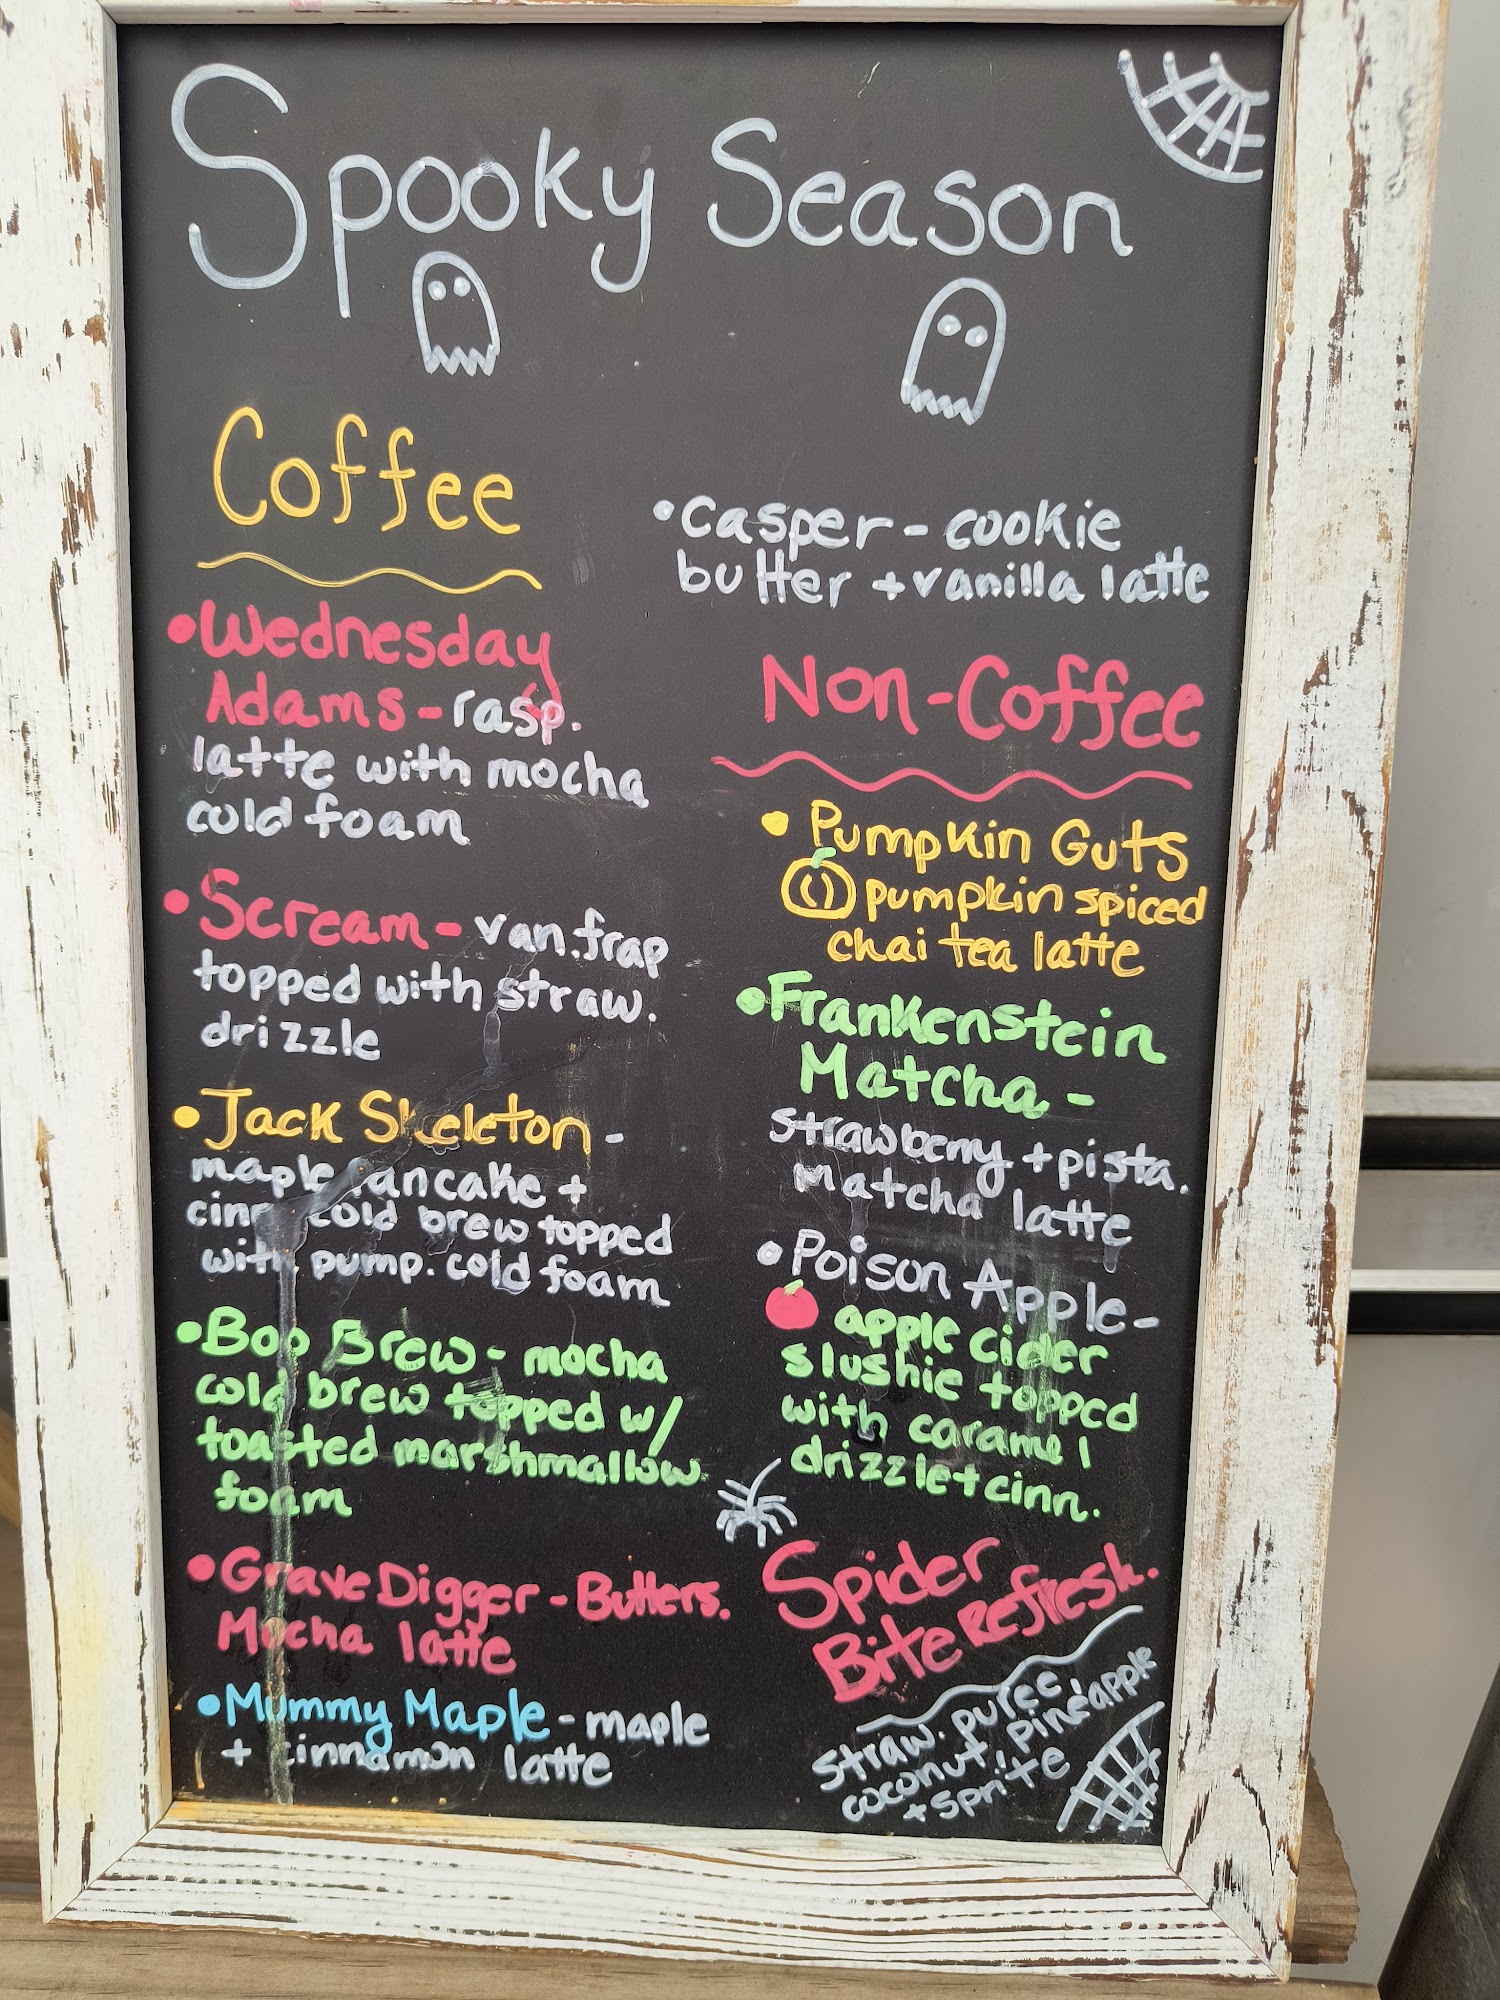 Spooky Season
Coffee
•Wednesday
Adams - rasp.
latte with mocha
cold foam
•Scream - van. frap
topped with straw.
drizzle
•Jack Skeleton -
maple pancake +
cinn. cold brew topped
with pump. cold foam
•Boo Brew - mocha
cold brew topped w/
toasted marshmallow
foam
•Grave Digger - Butters.
Mocha latte
•Mummy Maple - maple
+ cinnamon latte
•Casper - cookie
butter + vanilla latte
Non-Coffee
•Pumpkin Guts
pumpkin spiced
chai tea latte
•Frankenstein
Matcha -
strawberry + pista.
matcha latte
•Poison Apple -
apple cider
slushie topped
with caramel
drizzle + cinn.
Spider
Bite Refresh.
straw. puree
coconut, pineapple
+ sprite